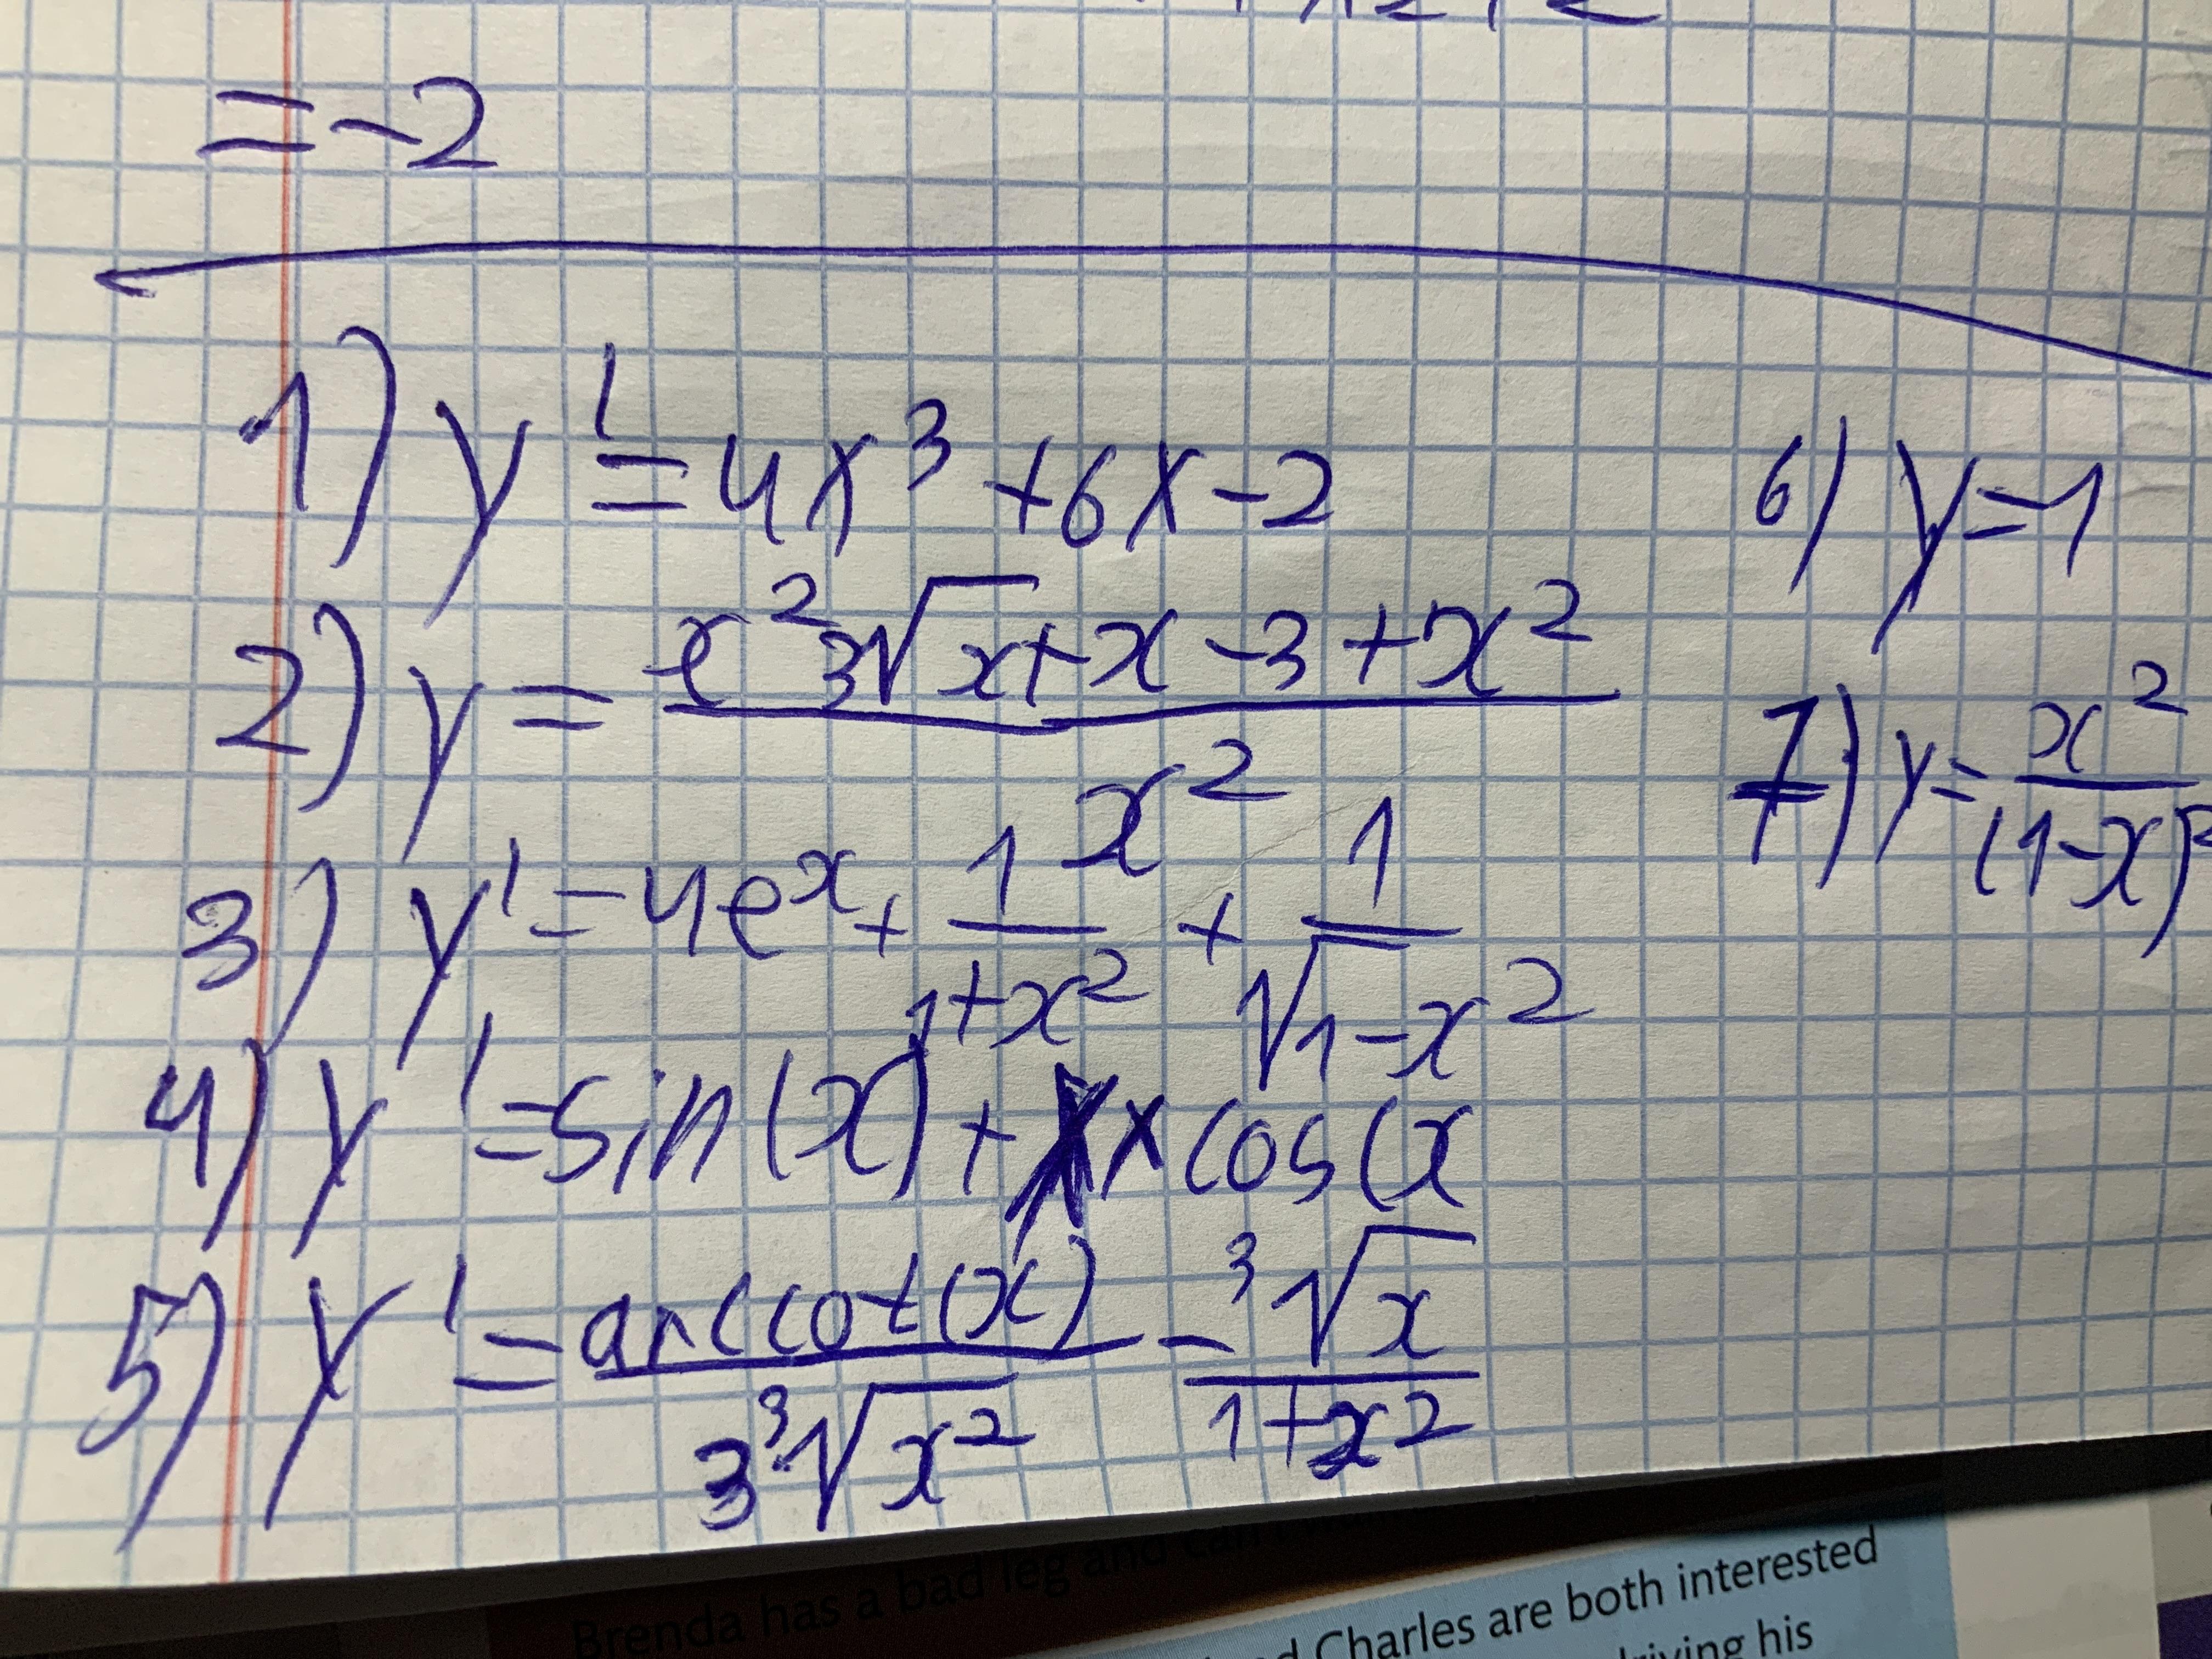 = -2
1) y' = 4x³ + 6x - 2
2) y = (x² ³√x + x - 3 + x²) / x²
3) y' = 4eˣ + 1/(1+x²) + 1/√(1-x²)
4) y' = sin(x) + x cos(x
5) y' = arccot(x) / (3 ³√x²) - ³√x / (1+x²)
6) y = 1
7) y = x² / (1-x)²
Brenda has a bad leg and can
Charles are both interested
driving his